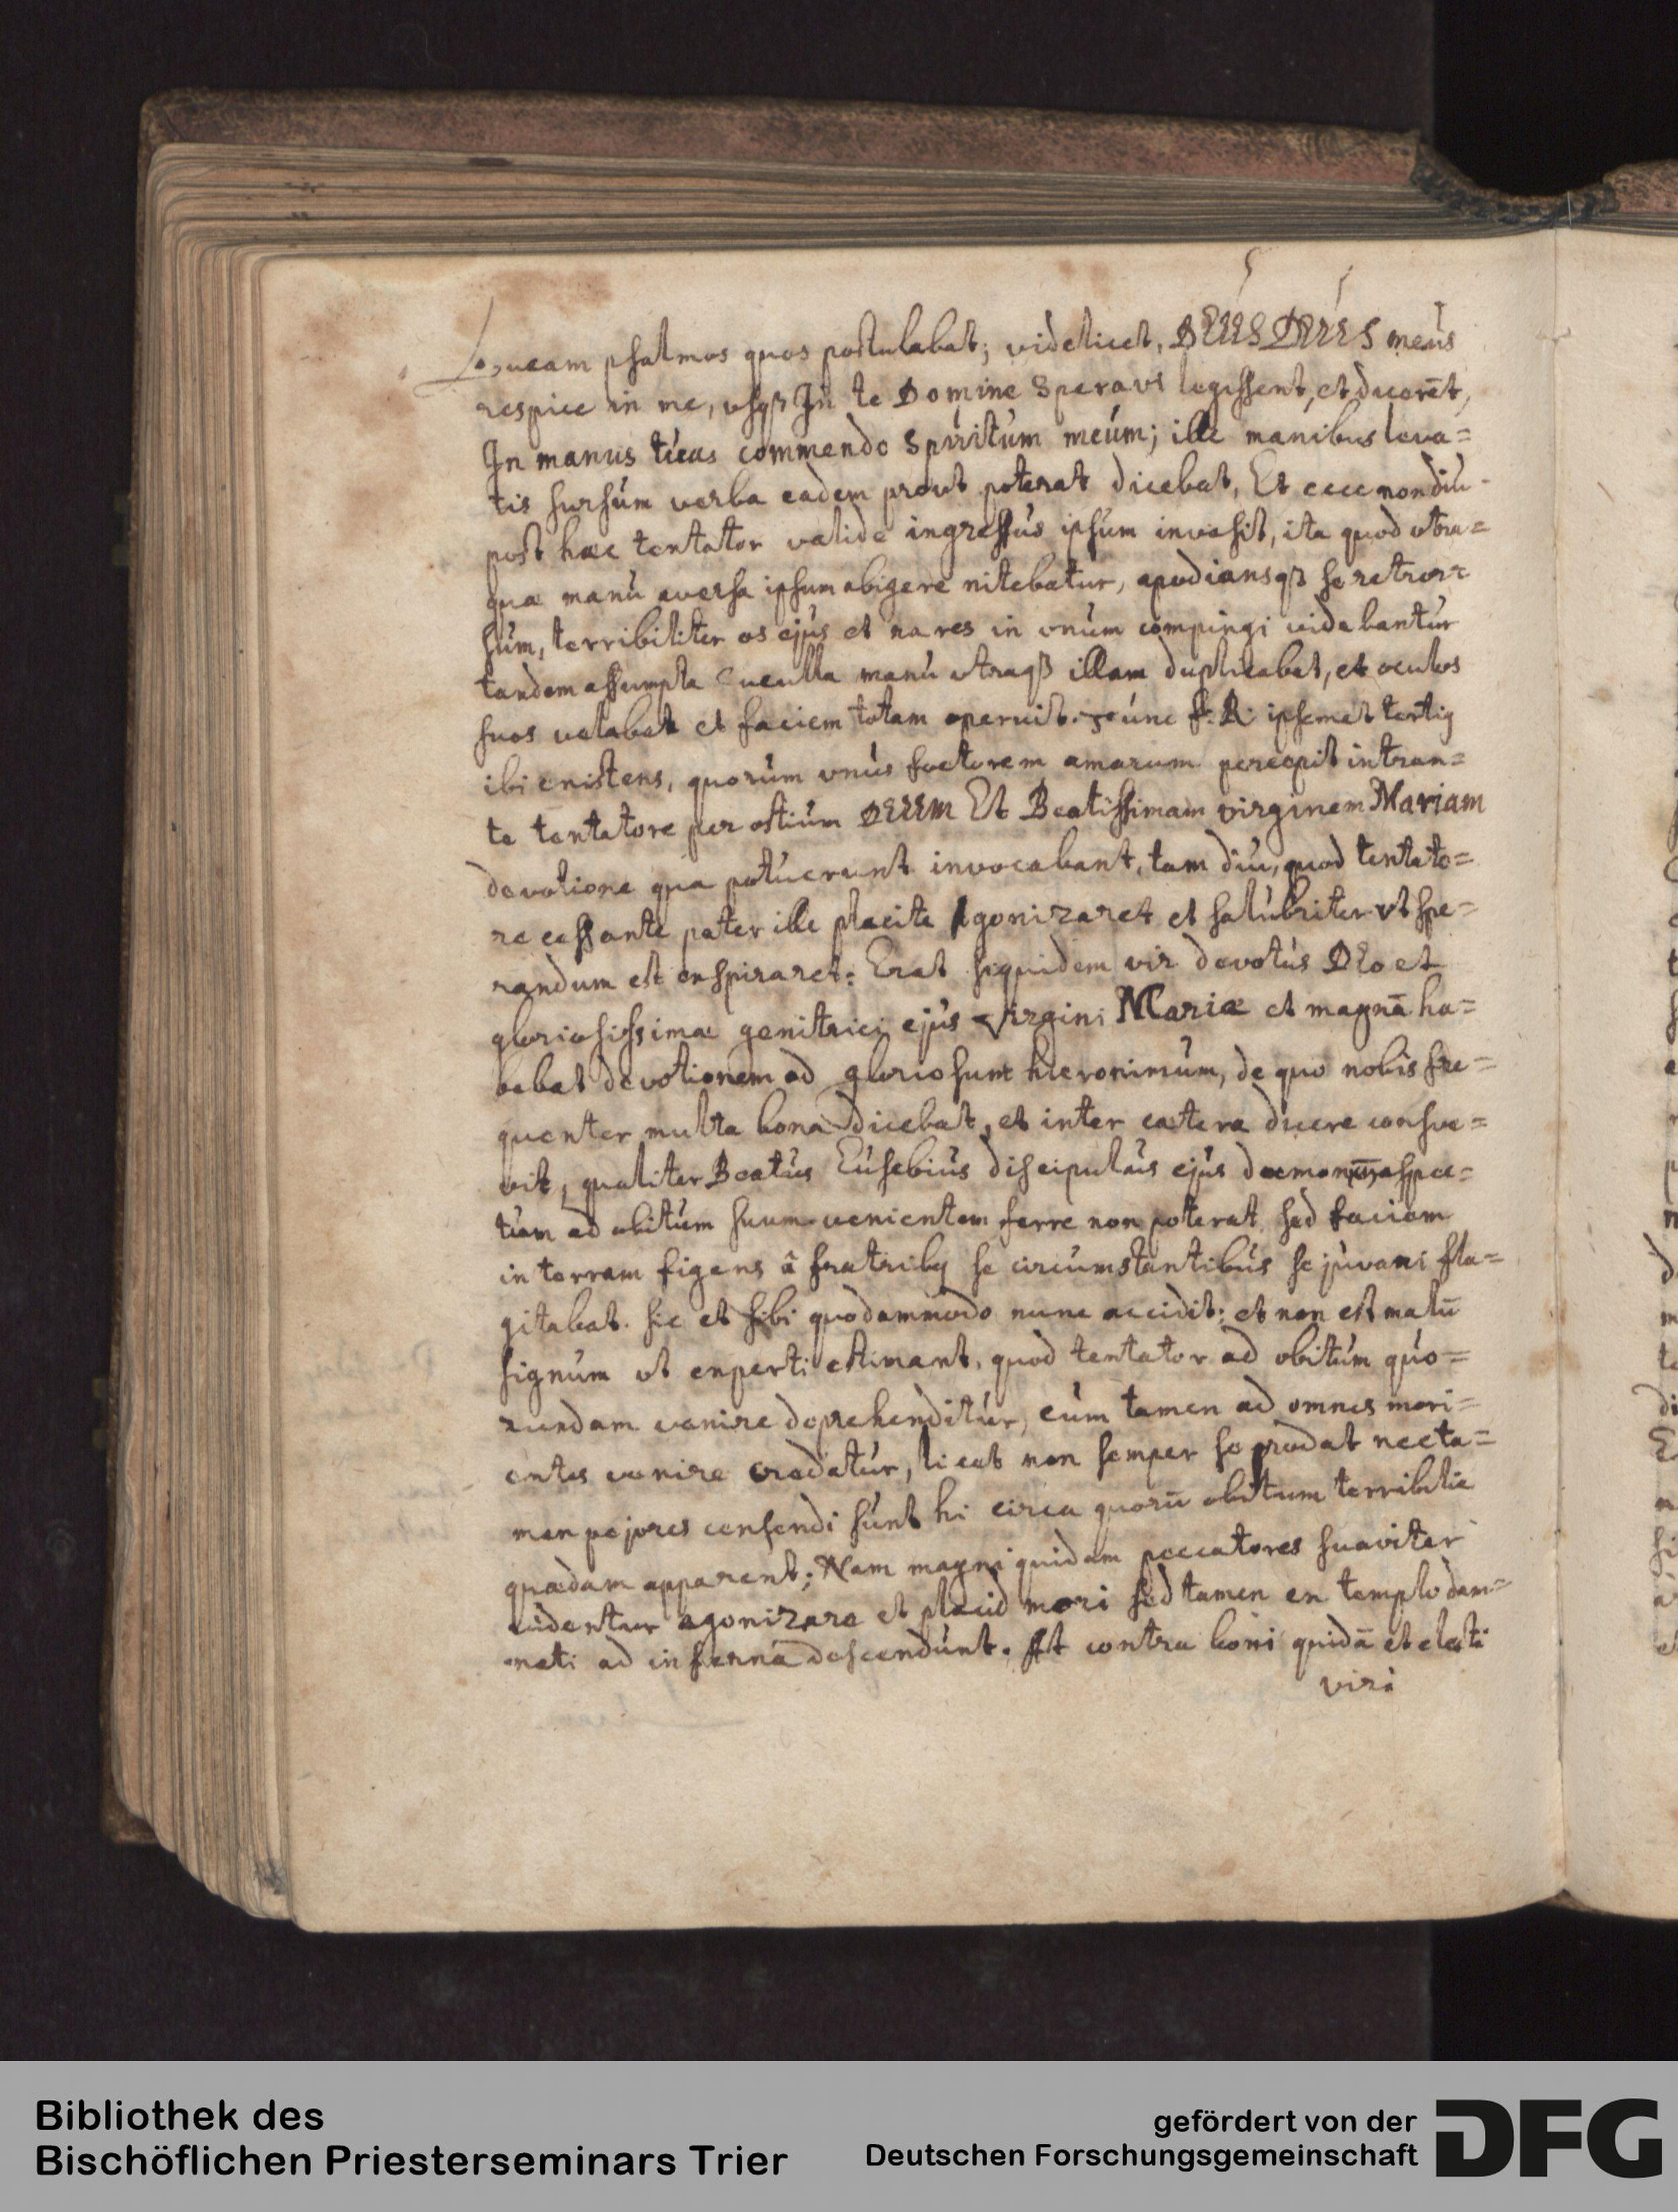 psalmos quos postulabat; videlicet, DEUS DEUS meus
respice in me, usqß In te Domine Speravi legissent, et dicerēt,
In manus tuas commendo Spiritum meum; ille manibus leva=
tis sursum verba eadem prout poterat dicebat, Et ecce non diu
post haec tentator valide ingressus ipsum invasit, ita quod utra=
que manu aversa ipsum abigere nitebatur, apodiansqß se retror=
sum, terribiliter os ejus et nares in unum compingi videbantur
tandem assumpta Cuculla manu utraqß illam duplicabat, et oculos
suos velabat et faciem totam operuit. tunc F. R. ipsemet tertiq
ibi existens, quorum unus foetorem amarum percepit intran=
te tentatore per ostium DEUM Et Beatissimam virginem Mariam
devotione qua potuerunt invocabant, tam diu, quod tentato=
re cessante pater ille placite Agonizaret et salubriter ut spe=
randum est exspiraret: Erat siquidem vir devotus DEo et
gloriosissimae genitrici ejus Virgini Mariae et magnā ha=
bebat devotionem ad gloriosum hieronimum, de quo nobis fre=
quenter multa bona dicebat, et inter caetera dicere consve=
vit, qualiter Beatus Eusebius discipulus ejus daemonum aspec=
tum ad obitum suum venientem ferre non poterat sed faciem
in terram figens â fratribq se circumstantibus se juvari fla=
gitabat. sic et sibi quodammodo nunc accidit: et non est malū
signum ut experti estimant, quod tentator ad obitum quo=
rundam venire deprehenditur, cum tamen ad omnes mori=
entes venire credatur, licet non semper se prodat nec ta=
men pejores censendi sunt hi circa quorū obitum terribilia
quaedam apparent; Nam magni quidam peccatores suaviter
videntur agonizare et placid mori sed tamen ex templo dam=
nati ad inferna descendunt. At contra boni quidā et electi
viri
Bibliothek des
Bischöflichen Priesterseminars Trier
gefördert von der
Deutschen Forschungsgemeinschaft
DFG